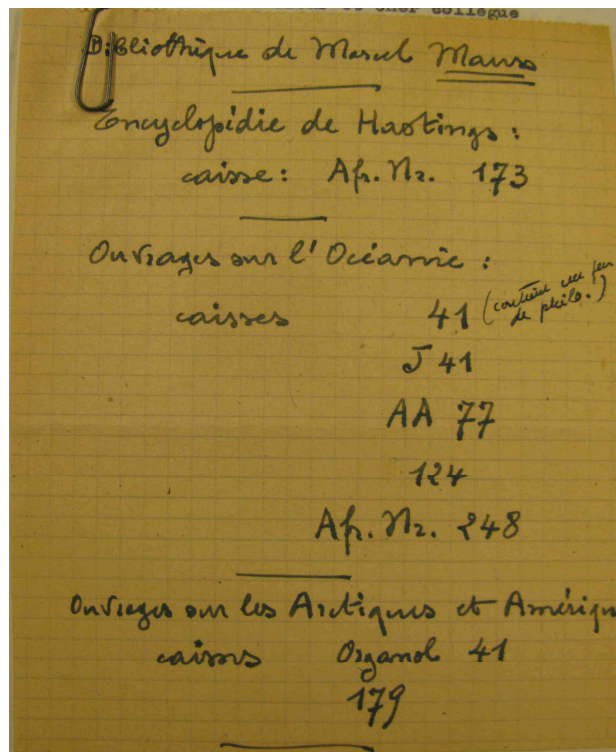 et cher collègue
Bibliothèque de Marcel Mauss
Encyclopédie de Hastings :
caisse : Afr. Nr. 173
Ouvrages sur l'Océanie :
caisses 41 (contient un peu
de philo.)
J 41
AA 77
124
Afr. Nr. 248
Ouvrages sur les Arctiques et Amériqu
caisses Organol 41
179